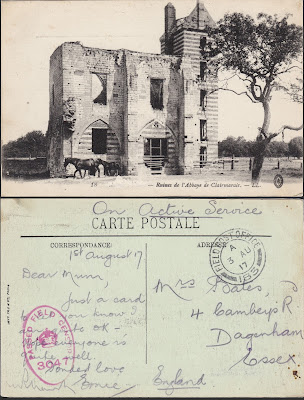 28 - Ruines de l'Abbaye de Clairmarais. - LL
On Active Service
CARTE POSTALE
CORRESPONDANCE
ADRESSE
1st August 17
Dear Mum,
Just a card
to let you know I
OK -
everyone is
quite well.
fondest love
Ernie -
FIELD POST OFFICE
A
3 AU
17
PASSED FIELD CENSOR
3047
Mrs Coates,
4 Cambeys Rd
Dagenham
Essex
England